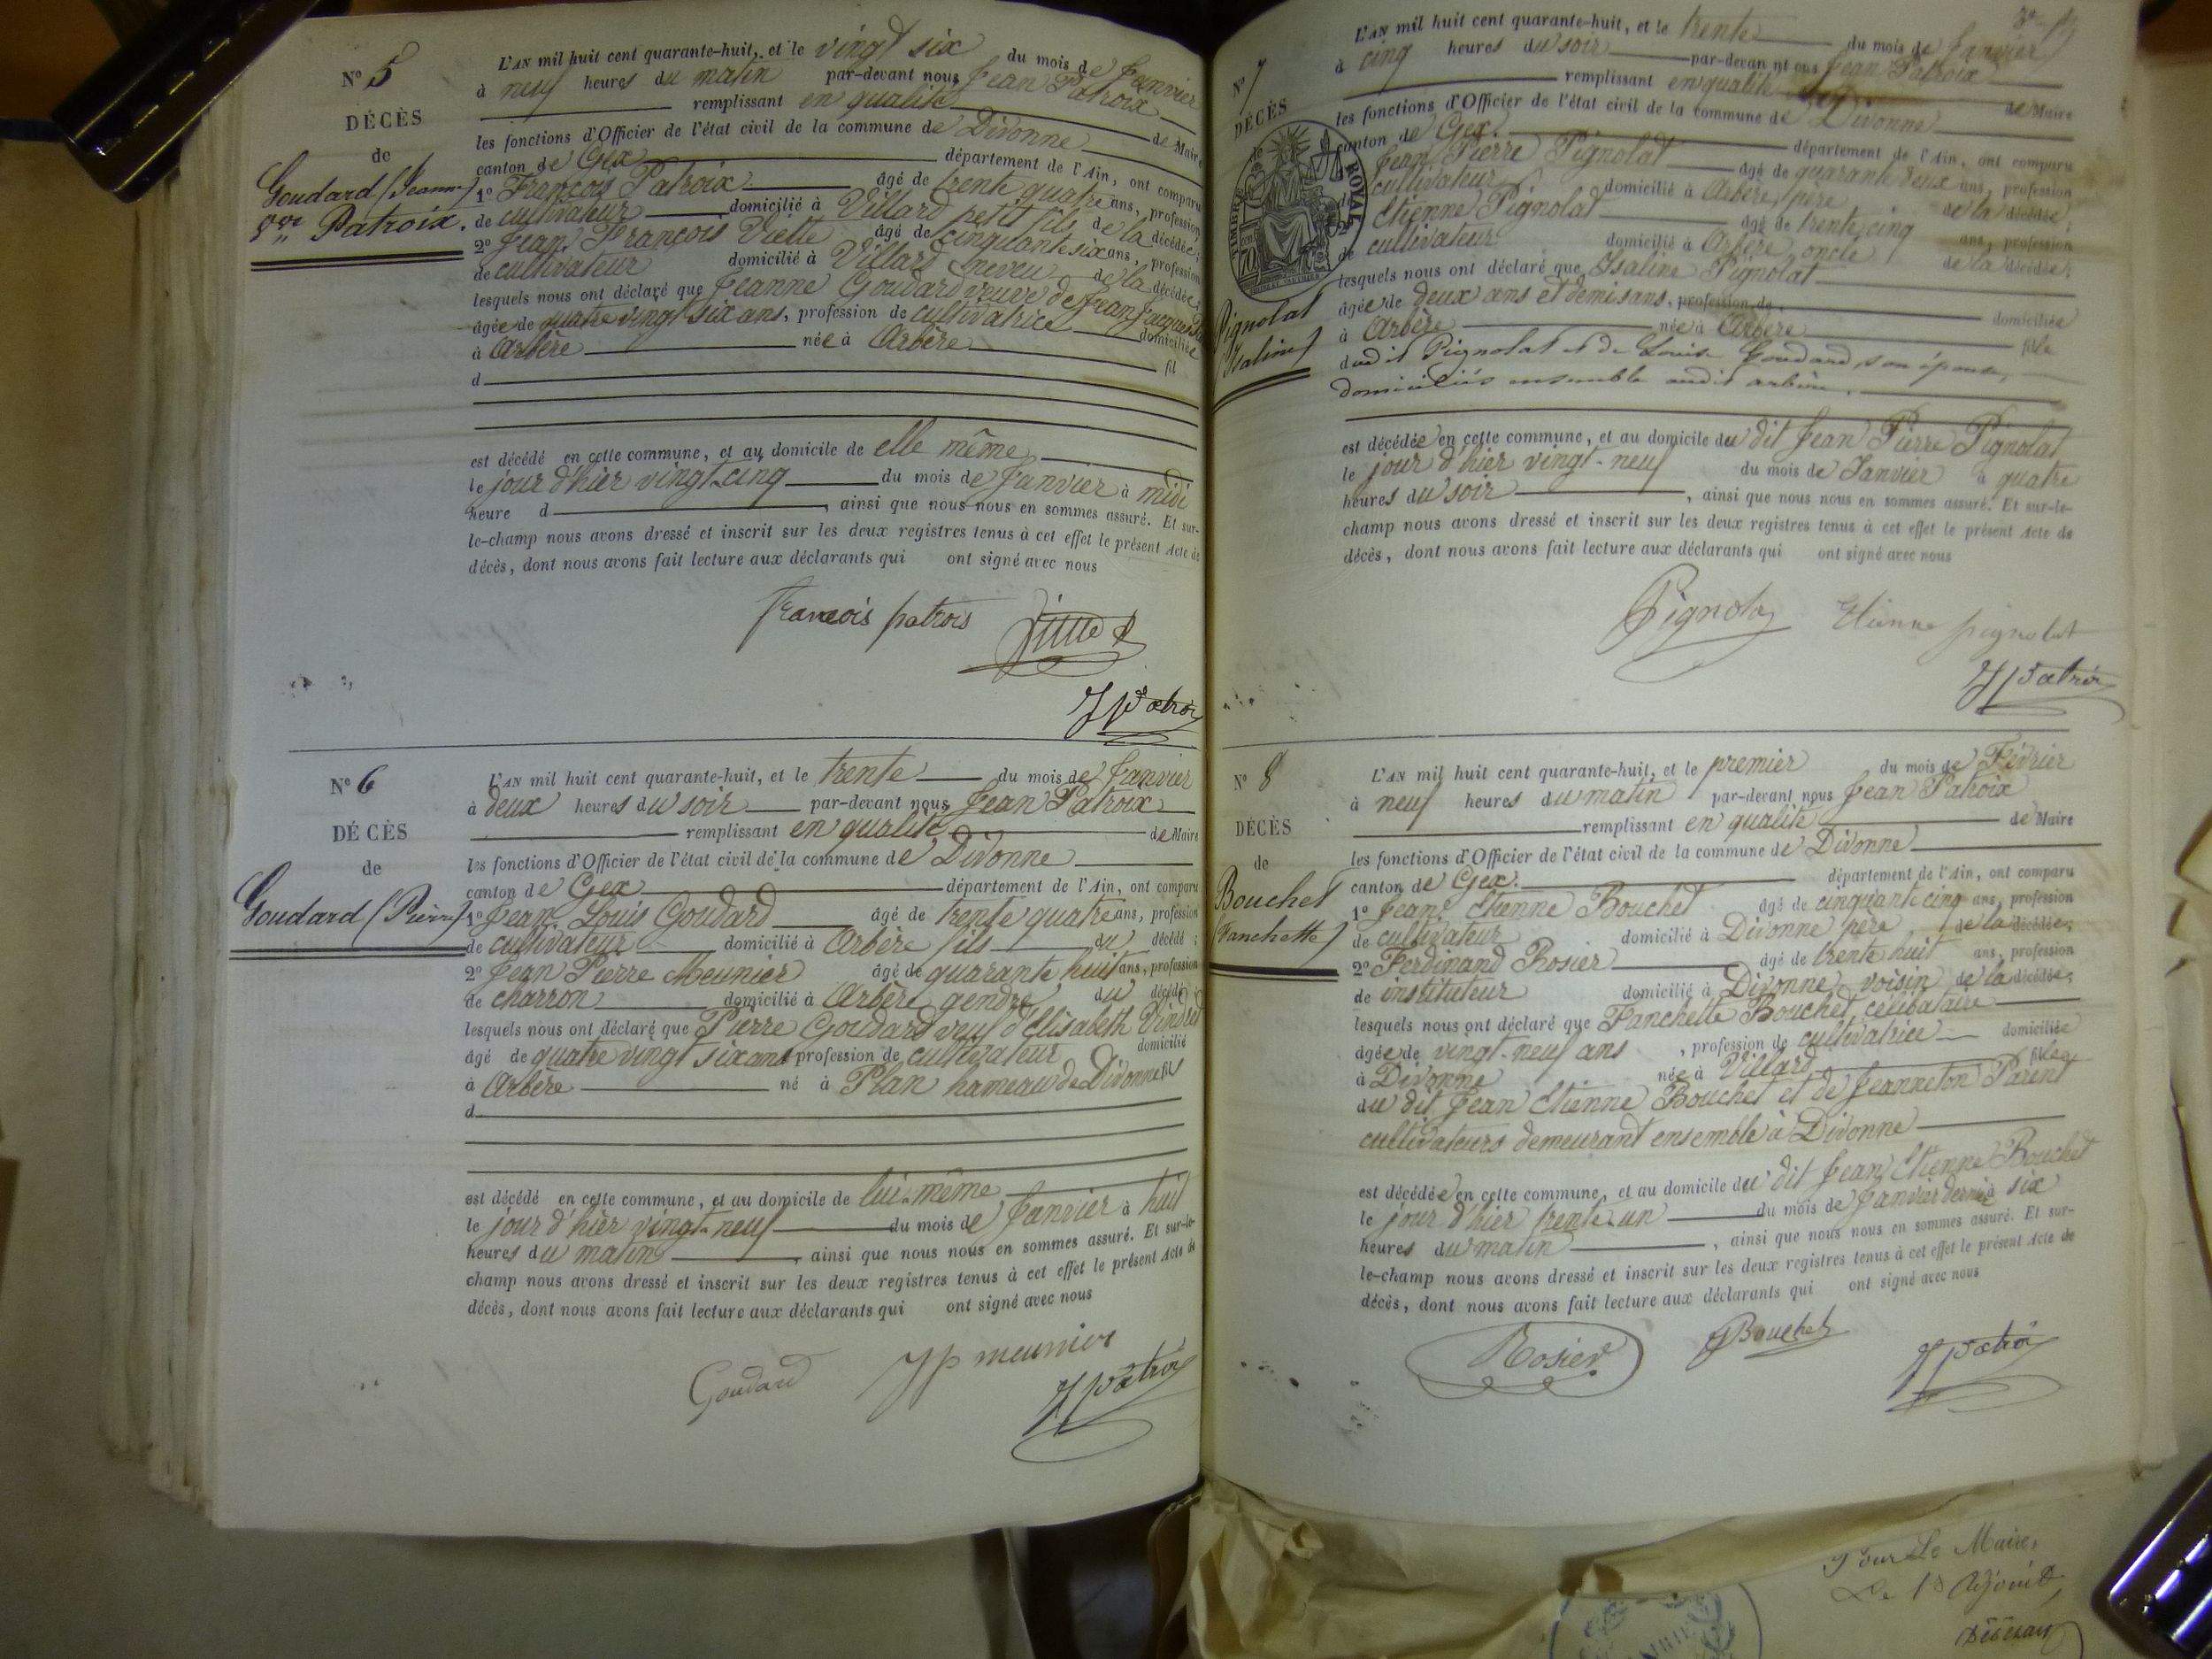 N° 5
DÉCÈS
de
Goudard (Jeanne)
Vve Patroix.
L'AN mil huit cent quarante-huit, et le vingt six du mois de Janvier
à neuf heures du matin par-devant nous Jean Patroix
remplissant en qualité de Maire
les fonctions d'Officier de l'état civil de la commune de Divonne
canton de Gex département de l'Ain, ont comparu
1° François Patroix âgé de trente quatre ans, profession
de cultivateur domicilié à Villard petit fils de la décédée;
2° Jean François Vielle âgé de cinquante six ans, profession
de cultivateur domicilié à Villard neveu de la décédée;
lesquels nous ont déclaré que Jeanne Goudard veuve de Jean Jacques
âgée de quatre vingt six ans, profession de cultivatrice domiciliée
à Arbère née à Arbère fil
d
est décédé en cette commune, et au domicile de elle même
le jour d'hier vingt-cinq du mois de Janvier à midi
heure d , ainsi que nous nous en sommes assuré. Et sur-
le-champ nous avons dressé et inscrit sur les deux registres tenus à cet effet le présent Acte de
décès, dont nous avons fait lecture aux déclarants qui ont signé avec nous
francois patrois
JPatroi
N° 6
DÉCÈS
de
Goudard (Pierre)
L'AN mil huit cent quarante-huit, et le trente du mois de Janvier
à deux heures du soir par-devant nous Jean Patroix
remplissant en qualité de Maire
les fonctions d'Officier de l'état civil de la commune de Divonne
canton de Gex département de l'Ain, ont comparu
1° Jean Louis Goudard âgé de trente quatre ans, profession
de cultivateur domicilié à Arbère fils du décédé;
2° Jean Pierre Meunier âgé de quarante huit ans, profession
de charron domicilié à Arbère gendre du décédé
lesquels nous ont déclaré que Pierre Goudard veuf d'Elisabeth Vindret
âgé de quatre vingt six ans profession de cultivateur domicilié
à Arbère né à Plan hameau de Divonne fils
d
est décédé en cette commune, et au domicile de lui-même
le jour d'hier vingt-neuf du mois de Janvier à huit
heures du matin , ainsi que nous nous en sommes assuré. Et sur-le-
champ nous avons dressé et inscrit sur les deux registres tenus à cet effet le présent Acte de
décès, dont nous avons fait lecture aux déclarants qui ont signé avec nous
Goudard JP meunier
JPatroi
N° 7
DÉCÈS
de
TIMBRE ROYAL
Pignolat
(Isaline)
L'AN mil huit cent quarante-huit, et le trente du mois de Janvier
à cinq heures du soir par-devant nous Jean Patroix
remplissant en qualité de Maire
les fonctions d'Officier de l'état civil de la commune de Divonne
canton de Gex. département de l'Ain, ont comparu
Jean Pierre Pignolat âgé de quarante deux ans, profession
cultivateur domicilié à Arbère, père de la décédée;
Etienne Pignolat âgé de trente cinq ans, profession
de cultivateur domicilié à Arbère, oncle de la décédée;
lesquels nous ont déclaré que Isaline Pignolat
âgée de deux ans et demi ans, profession de domiciliée
à Arbère née à Arbère fille
dudit Pignolat et de Louise Goudard, son épouse,
domiciliés ensemble audit arbère.
est décédée en cette commune, et au domicile du dit Jean Pierre Pignolat
le jour d'hier vingt-neuf du mois de Janvier à quatre
heures du soir , ainsi que nous nous en sommes assuré. Et sur-le-
champ nous avons dressé et inscrit sur les deux registres tenus à cet effet le présent Acte de
décès, dont nous avons fait lecture aux déclarants qui ont signé avec nous
Pignolat Etienne pignolat
JPatroi
N° 8
DÉCÈS
de
Bouchet
(Fanchette)
L'AN mil huit cent quarante-huit, et le premier du mois de Février
à neuf heures du matin par-devant nous Jean Patroix
remplissant en qualité de Maire
les fonctions d'Officier de l'état civil de la commune de Divonne
canton de Gex. département de l'Ain, ont comparu
1° Jean Etienne Bouchet âgé de cinquante cinq ans, profession
de cultivateur domicilié à Divonne père de la décédée;
2° Ferdinand Rosier âgé de trente huit ans, profession
de instituteur domicilié à Divonne, voisin de la décédée;
lesquels nous ont déclaré que Fanchette Bouchet, célibataire
âgée de vingt-neuf ans , profession de cultivatrice domiciliée
à Divonne née à Villard fille
du dit Jean Etienne Bouchet et de Jeanneton Parent
cultivateurs demeurant ensemble à Divonne
est décédée en cette commune, et au domicile du dit Jean Etienne Bouchet
le jour d'hier trente-un du mois de Janvier dernier à six
heures du matin , ainsi que nous nous en sommes assuré. Et sur-
le-champ nous avons dressé et inscrit sur les deux registres tenus à cet effet le présent Acte de
décès, dont nous avons fait lecture aux déclarants qui ont signé avec nous
Rosier Bouchet JPatroi
Pour Le Maire,
Le 1er Adjoint,